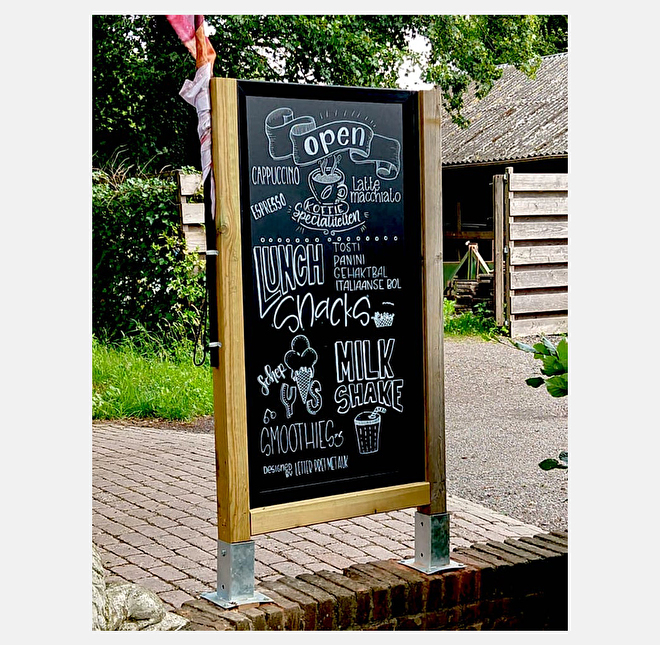 open
CAPPUCCINO
Latte
macchiato
ESPRESSO
KOFFIE
Specialiteiten
LUNCH
TOSTI
PANINI
GEHAKTBAL
ITALIAANSE BOL
Snacks
Schep
YS
MILK
SHAKE
SMOOTHIES
DESIGNED
BY LETTER PRET MET ALK